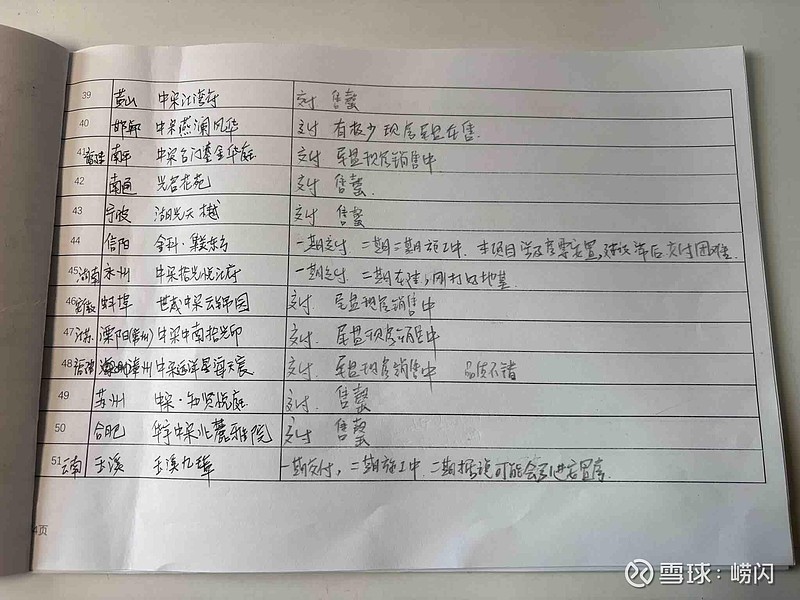 39 黄山 中梁江湾府 交付 售罄
40 邯郸 中梁燕澜风华 交付 有极少现房尾盘在售.
41 福建 南平 中梁台门鎏金华庭 交付 尾盘现房销售中
42 南通 光名花苑 交付 售罄.
43 宁波 湖光天樾 交付 售罄
44 信阳 金科·集美东方 一期交付 二期三期施工中. 本项目涉及 安置,
45 湖南 永州 中梁拾光悦江府 一期交付 二期在建,刚打好地基
46 安徽 蚌埠 世茂中梁云锦园 交付. 尾盘现房销售中
47 江苏 溧阳(常州) 中梁中南拾光印 交付. 尾盘现房销售中
48 福建 漳州 中梁远洋星海天宸 交付. 尾盘现房销售中 品质不错
49 苏州 中梁·知贤悦庭 交付. 售罄
50 合肥 华宇中梁北麓雅院 交付 售罄
51 云南 玉溪 玉溪九璋 一期交付,二期施工中. 二期据说可能会改建安置房.
4页
雪球:崂闪